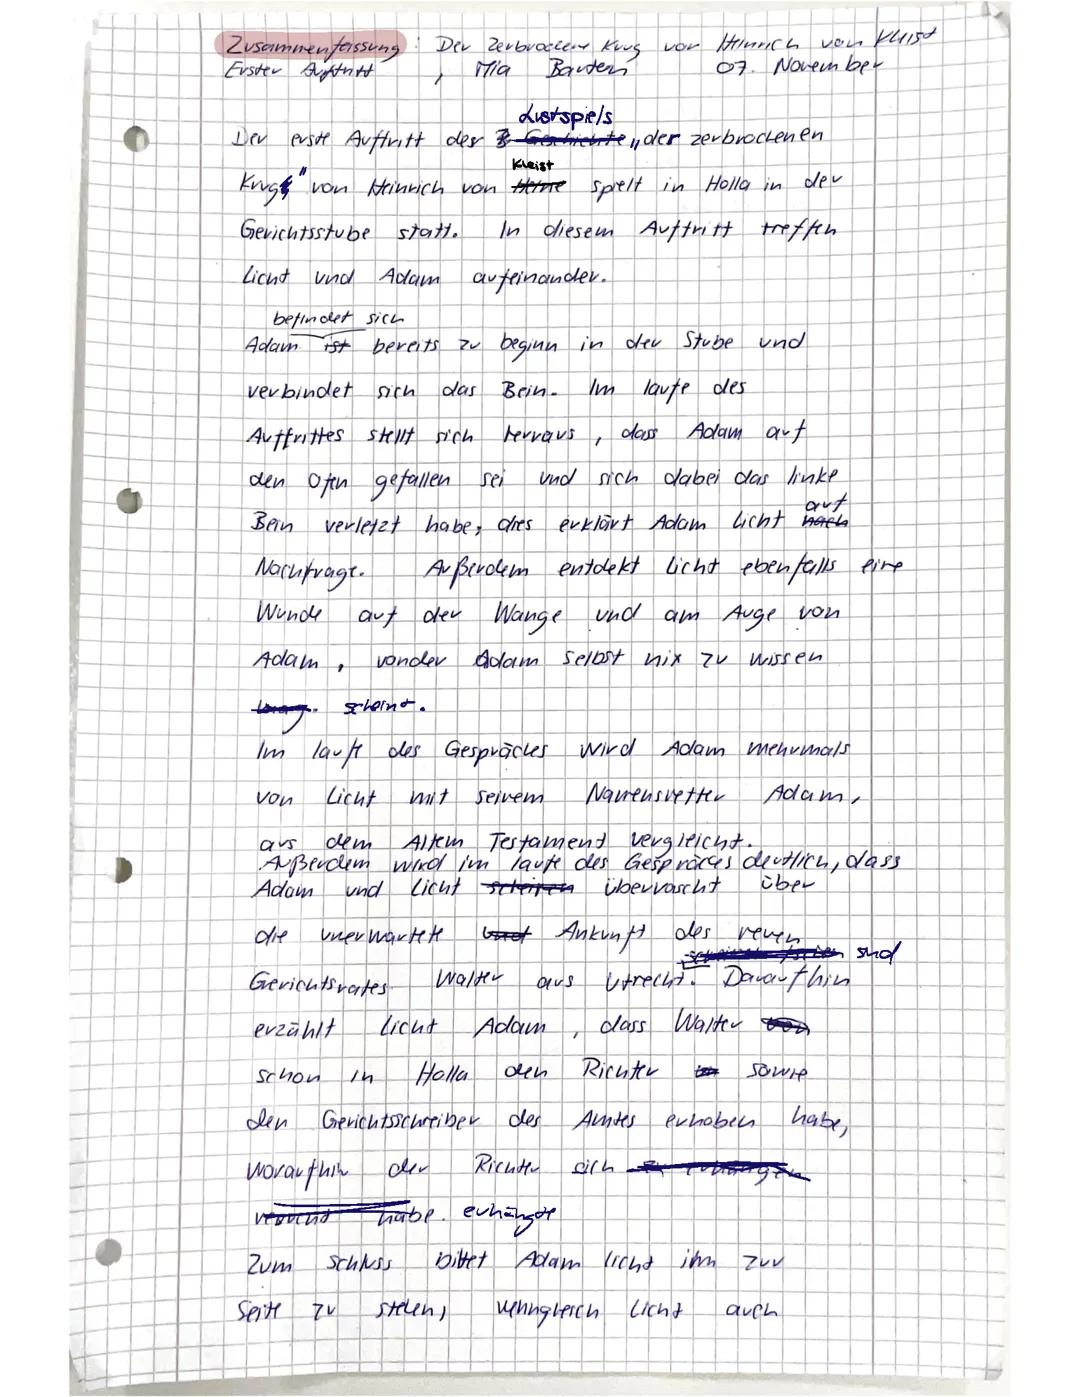 Zusammenfassung: Der zerbrochene Krug von Heinrich von Kleist
Erster Auftritt, Mia Barten 07. November
Lustspiels
Der erste Auftritt des Geschichte „der zerbrochenen
Kleist
Krug" von Heinrich von Heine spielt in Holla in der
Gerichtsstube statt. In diesem Auftritt treffen
Licht und Adam aufeinander.
befindet sich
Adam ist bereits zu beginn in der Stube und
verbindet sich das Bein. Im laufe des
Auftrittes stellt sich herraus, dass Adam auf
den Ofen gefallen sei und sich dabei das linke
auf
Bein verletzt habe, dies erklärt Adam Licht nach
Nachfrage. Außerdem entdekt Licht ebenfalls eine
Wunde auf der Wange und am Auge von
Adam, von der Adam selbst nix zu wissen
scheint.
Im laufe des Gespräches wird Adam mehrmals
von Licht mit seinem Namensvetter Adam,
aus dem Altem Testament vergleicht.
Außerdem wird im laufe des Gespräches deutlich, dass
Adam und Licht scheinen überrascht über
die unerwartete und Ankunft des neuen
sind
Gerichtsrates Walter aus Utrecht. Daraufhin
erzählt Licht Adam, dass Walter von
schon in Holla den Richter sowie
den Gerichtsschreiber des Amtes erhoben habe,
woraufhin der Richter sich zu erhängen
versucht habe. erhängte
Zum schluss bittet Adam licht ihm zur
Seite zu stehen, wenngleich Licht auch